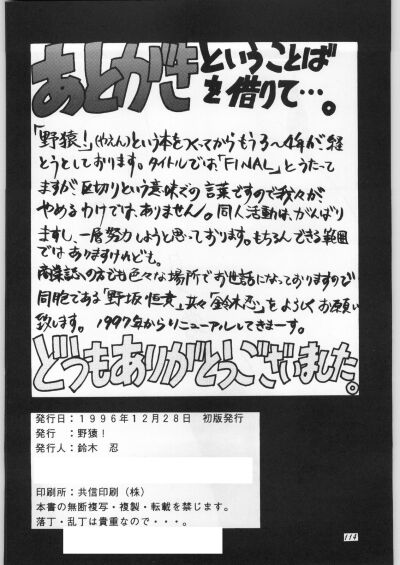 あとがきということば
を借りて…。
「野猿!」(やえん)という本をつくってからもう3〜4年が経
とうとしております。タイトルでは、「FINAL」とうたって
ますが、区切りという意味での言葉ですので我々が
やめるわけでは、ありません。同人活動は、がんばり
ますし、一層努力しようと思っております。もちろんできる範囲
ではありますけれども。
商業誌の方でも色々な場所でお世話になっておりますので
同胞である「野坂恒貴」共々「鈴木忍」をよろしくお願い
致します。1997年からリニューアルしてきまーす。
どうもありがとうございました。
発行日:1996年12月28日 初版発行
発行 :野猿!
発行人:鈴木 忍
印刷所:共信印刷(株)
本書の無断複写・複製・転載を禁じます。
落丁・乱丁は貴重なので・・・。
114